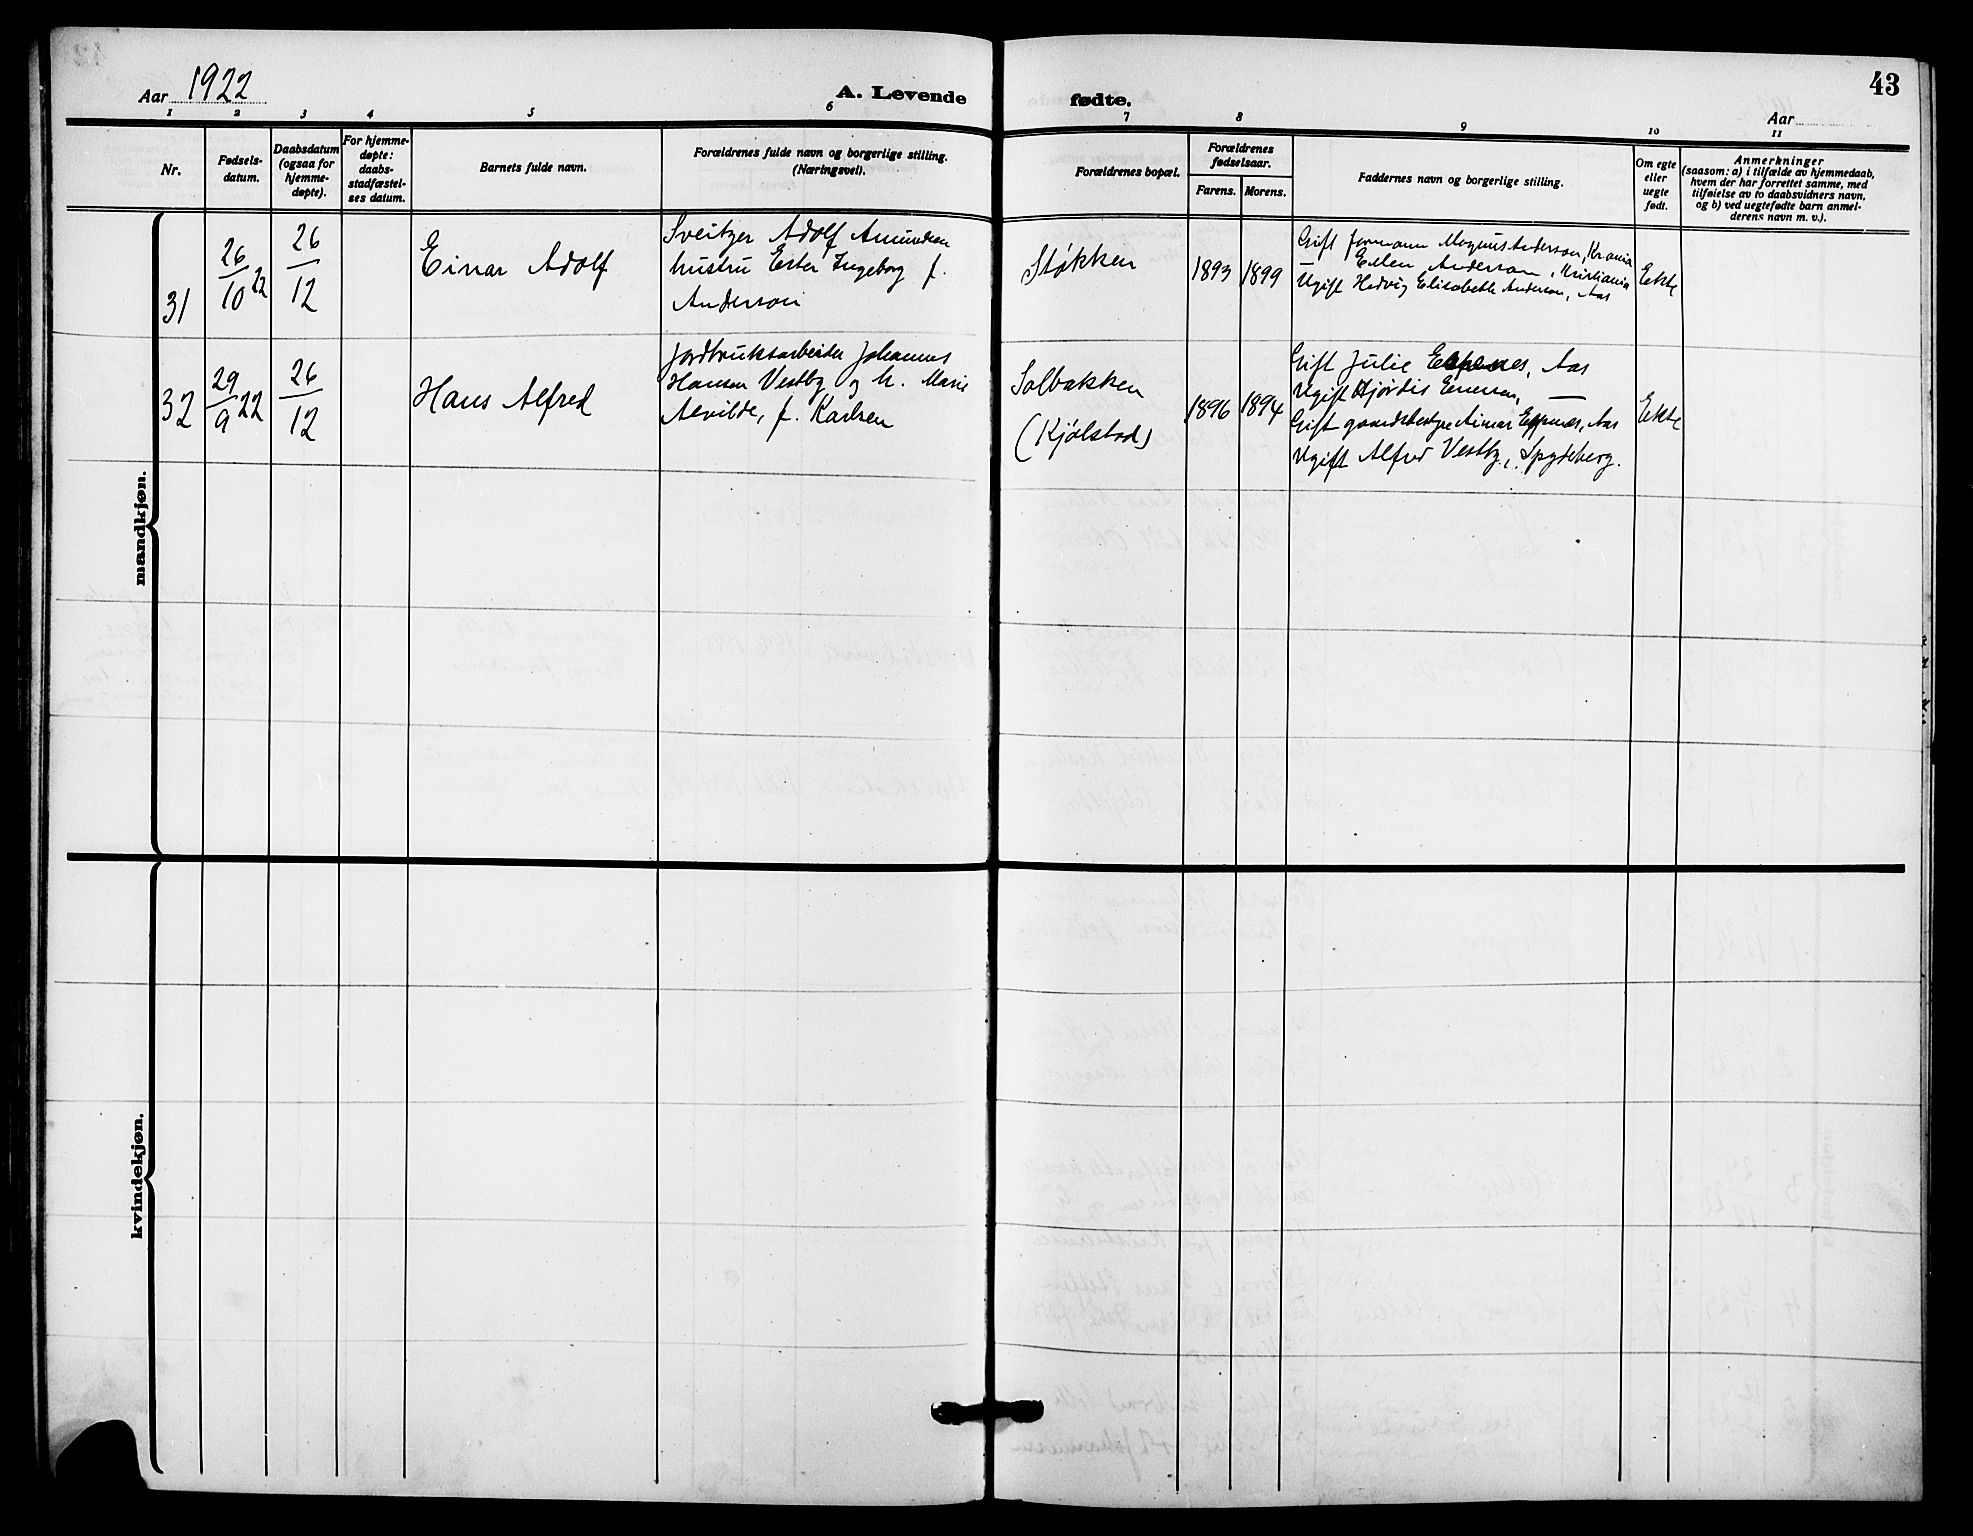 Aar 1922
A. Levende fødte.
43
Aar
1 2 3 4 5 6 7 8 9 10 11
Nr.
Fødsels-
datum.
Daabsdatum
(ogsaa for
hjemme-
døpte).
For hjemme-
døpte:
daabs-
stadfæstel-
ses datum.
Barnets fulde navn.
Forældrenes fulde navn og borgerlige stilling.
(Næringsvei).
Forældrenes bopæl.
Forældrenes
fødselsaar.
Farens. Morens.
Faddernes navn og borgerlige stilling.
Om egte
eller
uegte
født.
Anmerkninger
(saasom: a) i tilfælde av hjemmedaab,
hvem der har forrettet samme, med
tilføielse av to daabsvidners navn,
og b) ved uegtefødte barn anmel-
derens navn m. v.).
mandkjøn.
31
26/10 22
26/12
Einar Adolf
Sveitzer Adolf Amundsen
hustru Ester Ingeborg f.
Anderson
Støkken
1893
1899
Gift formann Magnus Anderson, Krania
Ellen Anderson, Kristiania
Ugift Hedvig Elisabeth Anderson, Aas
Ekte
32
29/9 22
26/12
Hans Alfred
Jordbruksarbeider Johannes
Hansen Vestby og h. Marie
Alvilde, f. Karlsen
Solbakken
(Kjølstad)
1896
1894
Gift Julie Espenes, Aas
Ugift Hjørdis —
Gift gaardsbestyre Espenes, Aas
Ugift Alfred Vestby, Spydeberg.
Ekte
kvindekjøn.